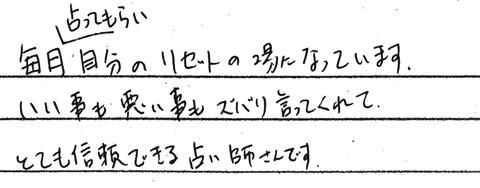 占ってもらい
毎月 自分のリセットの場になっています.
いい事も悪い事もズバリ言ってくれて.
とても信頼できる占い師さんです.